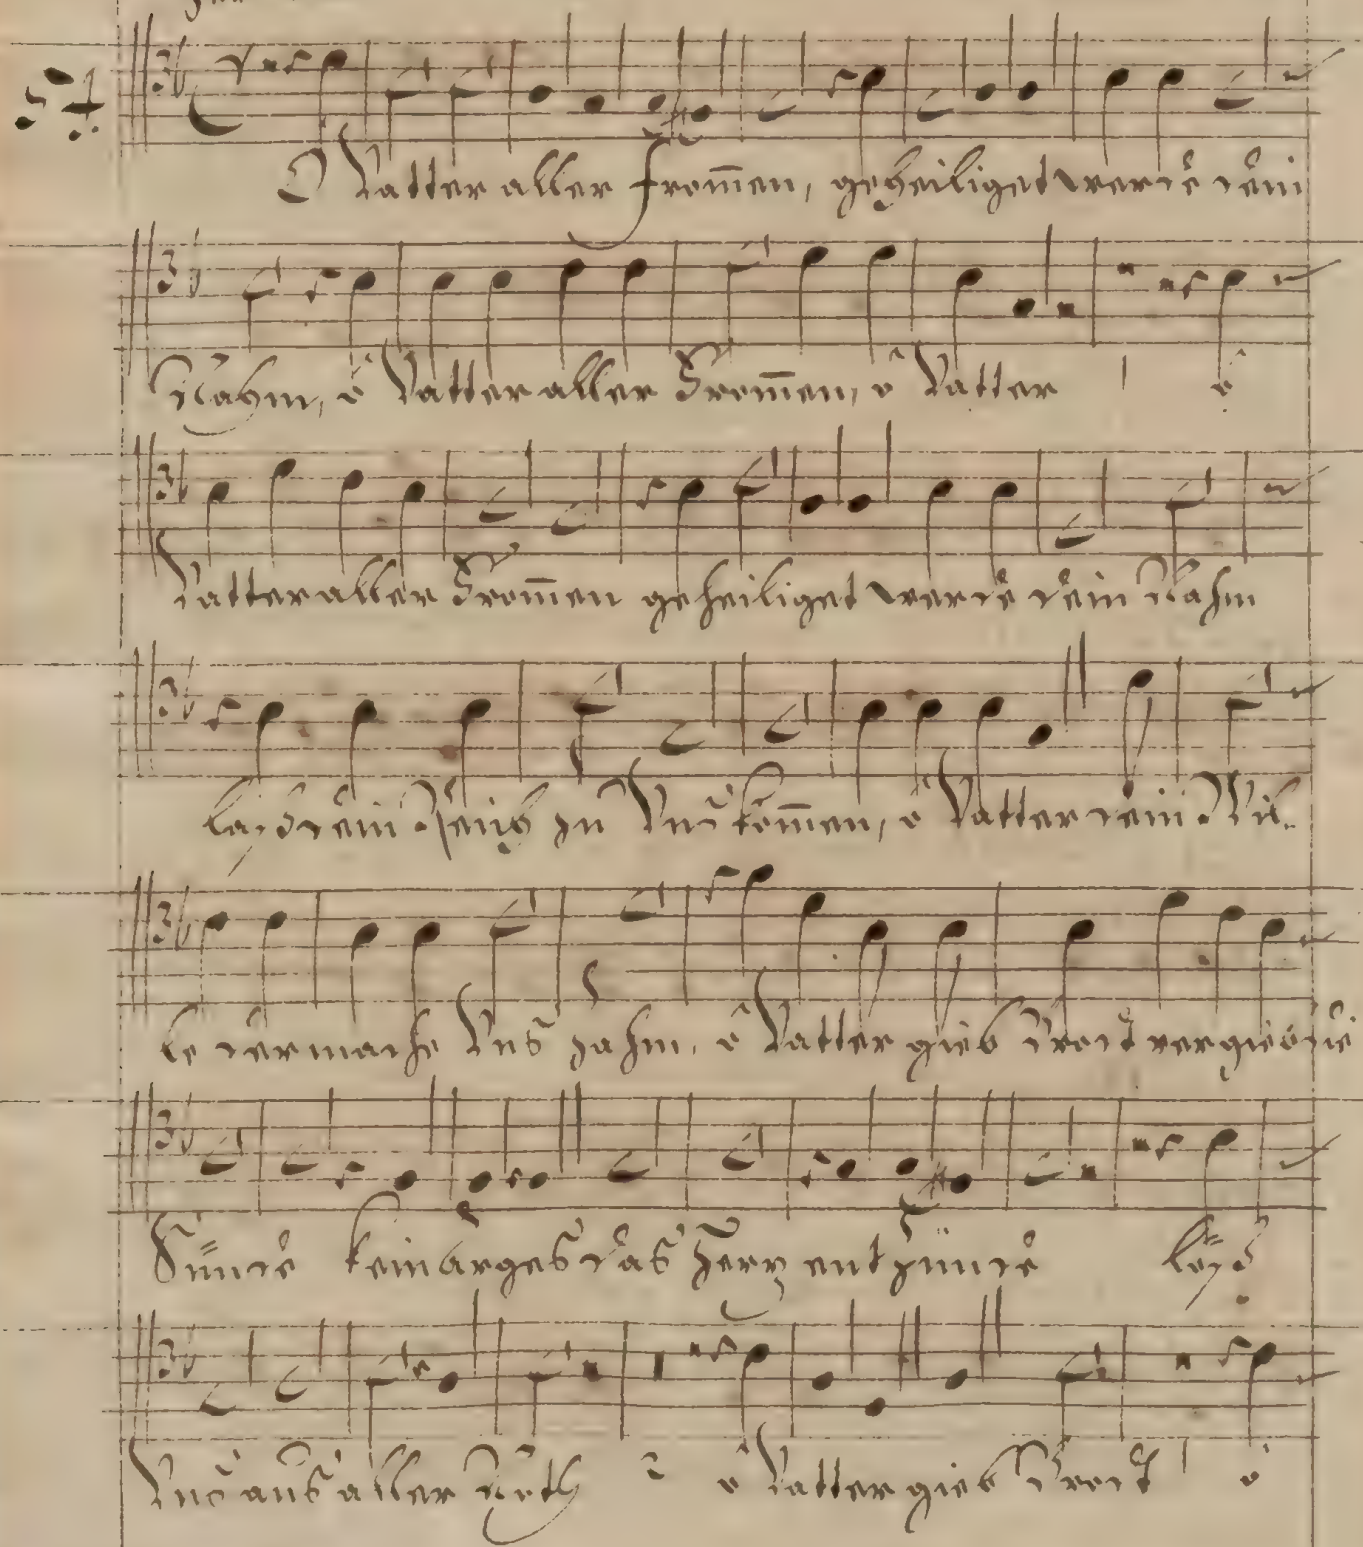 54
O Vatter aller from̄en, geheiliget werde dein
Nahm, o Vatter aller From̄en, o Vatter o
Vatter aller From̄en geheiliget werde dein Nahm
laß dein Reich zu Unß kom̄en, o Vatter dein Wil-
le der mache Unß zahm, o Vatter gieb Brodt vergieb die
Sünde kein arges das Hertz entzünde löß
Unß auß aller Noth o Vatter gieb Brodt o